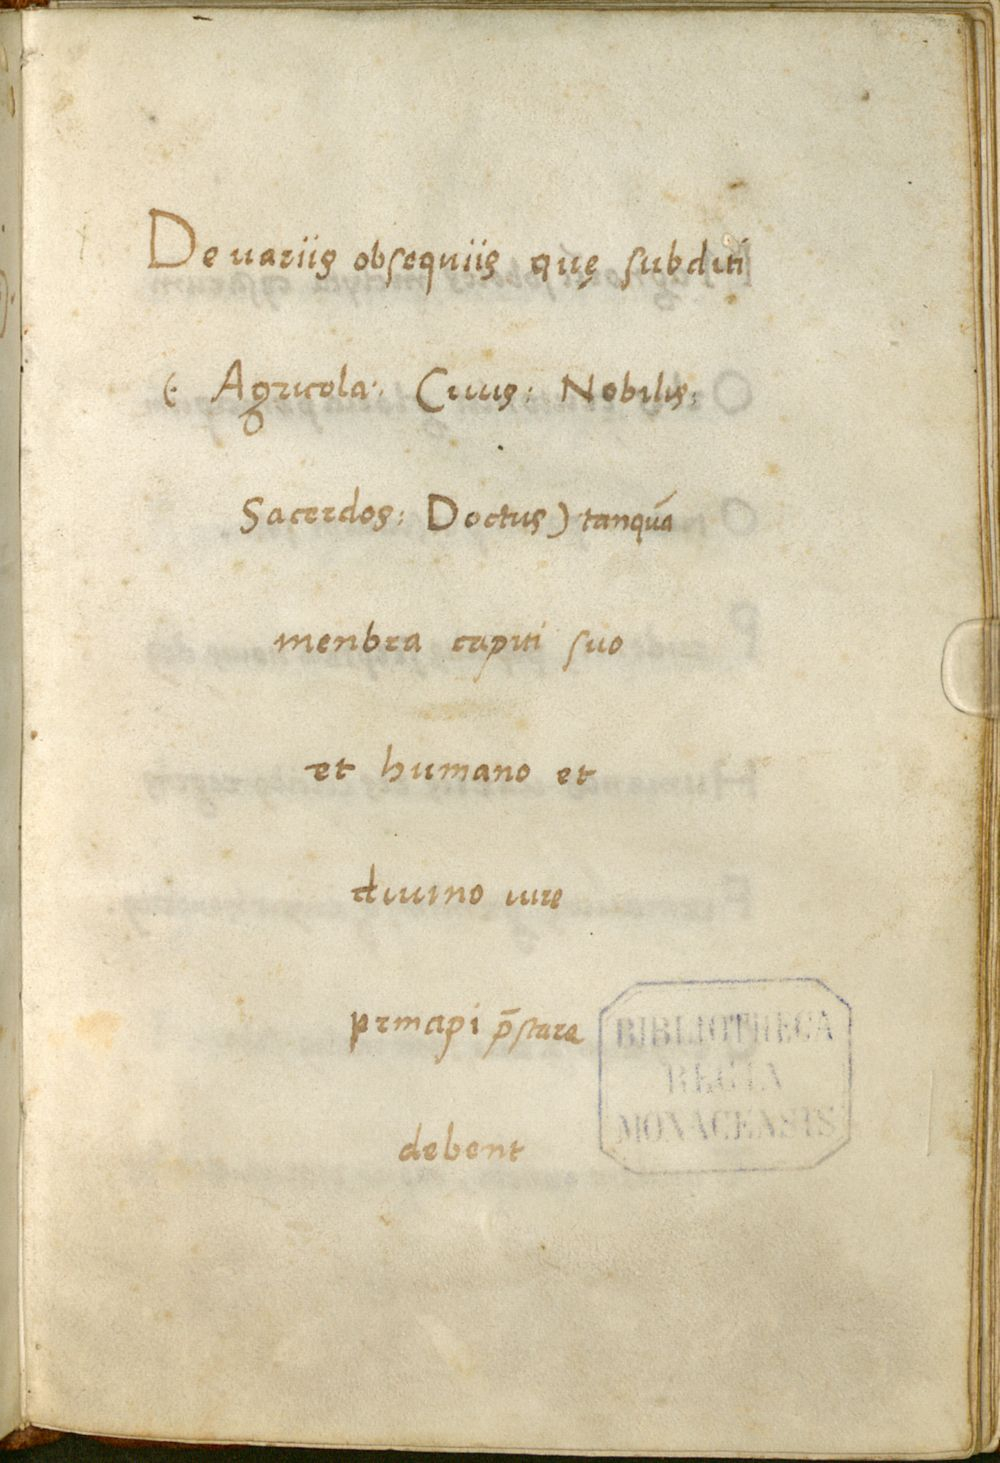 De uariis obsequiis quę subditi
(: Agricola: Ciuis: Nobilis:
Sacerdos: Doctus) tanquā
menbra capiti suo
et humano et
diuino iure
principi p̄stare
debent
BIBLIOTHECA
REGIA
MONACENSIS